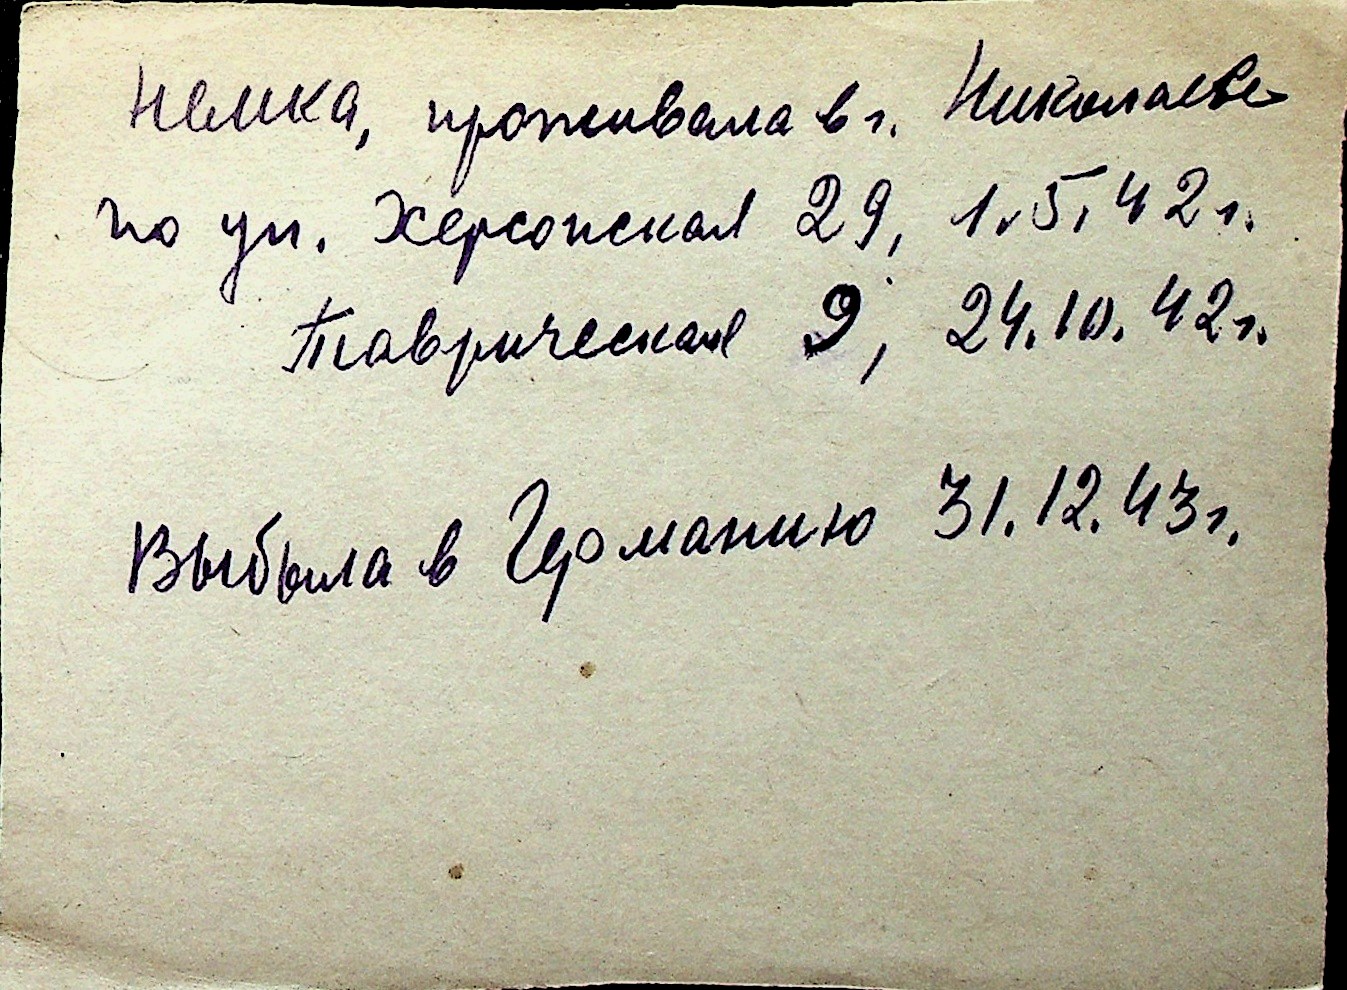 немка, проживала в г. Николаеве
по ул. Херсонская 29, 1.5.42 г.
Таврическая 9, 24.10.42 г.
Выбыла в Германию 31.12.43 г.